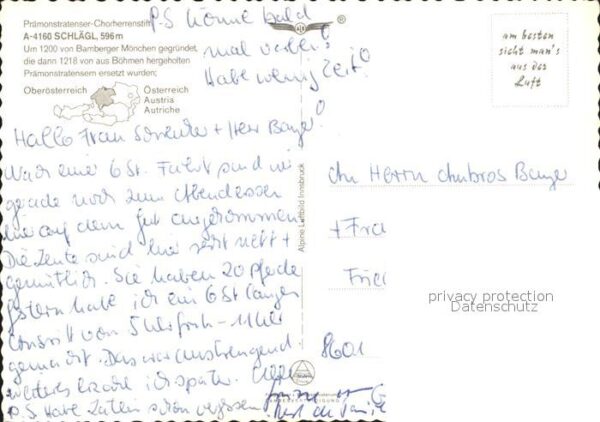 Prämonstratenser-Chorherrenstift
A-4160 SCHLÄGL, 596m
Um 1200 von Bamberger Mönchen gegründet,
die dann 1218 von aus Böhmen hergeholten
Prämonstratensern ersetzt wurden;
Oberösterreich
Österreich
Austria
Autriche
P.S könnt bald
mal
Habe wenig Zeit!
am besten
sieht man's
aus der
Luft
Hallo Frau + Herr Banger!
Nach einer 6 St. Fahrt sind wir
gerade noch zum Abendessen
hier auf dem Gut angekommen
Die Leute sind hier sehr nett +
gemütlich. Sie haben 20 Pferde
gestern habe ich ein 6 St langen
von 5 Uhr früh - 11 Uhr
gemacht. Das war anstrengend
weiteres ich später.
P.S. Habe schon vergessen
Alpine Luftbild Innsbruck
An Herrn Ambros Banger
+ Fra
Fried
8601
privacy protection
Datenschutz